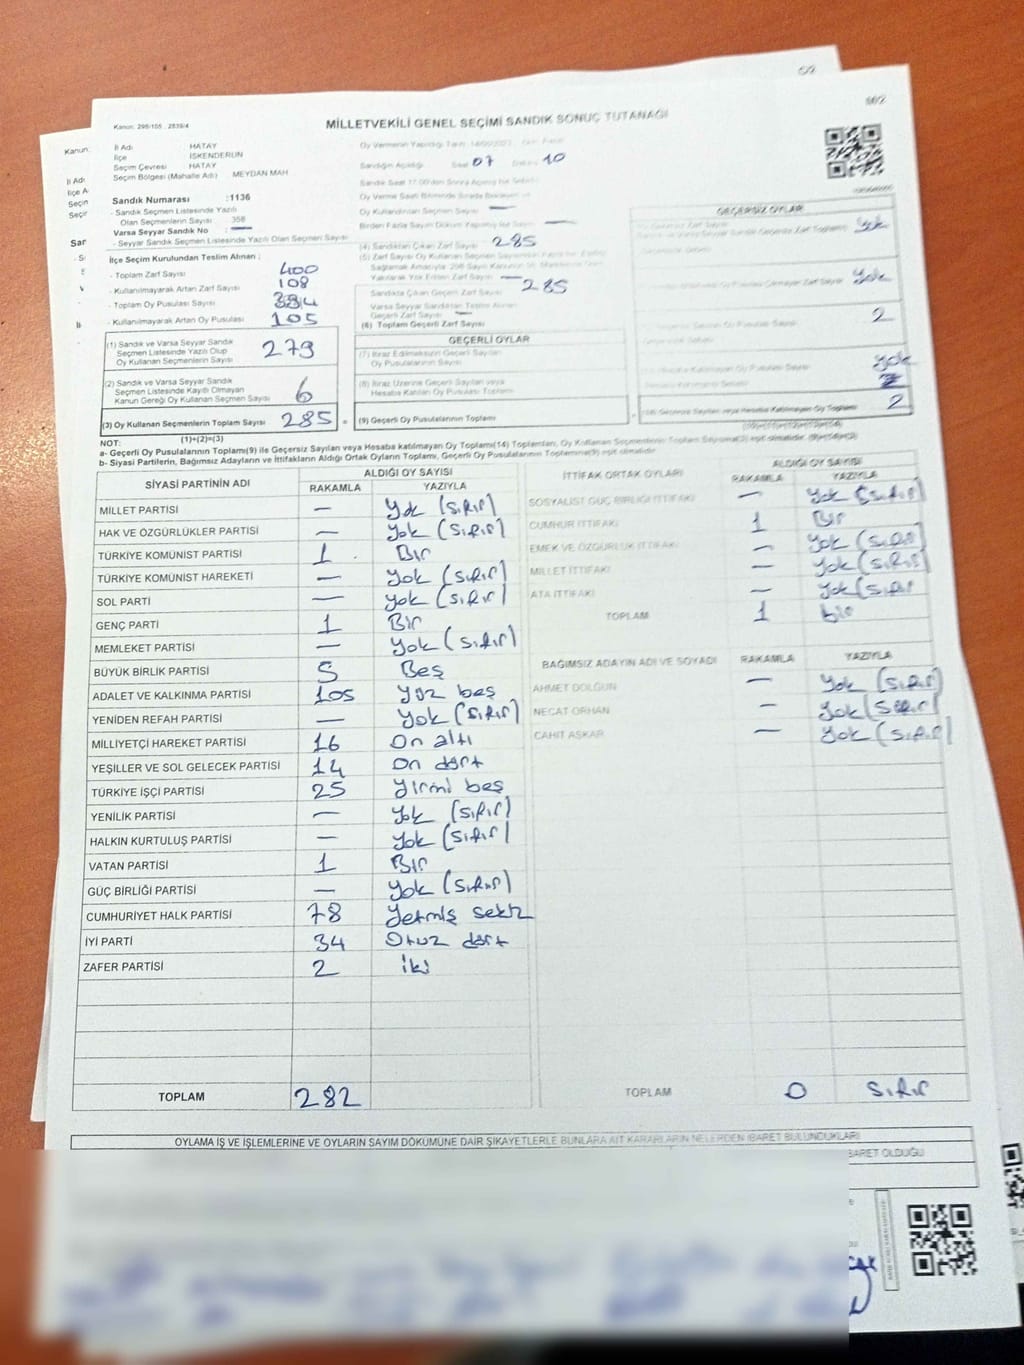 502
502
Kanun: 298/105 , 2839/4
MİLLETVEKİLİ GENEL SEÇİMİ SANDIK SONUÇ TUTANAĞI
Kanun:
İl Adı HATAY
İlçe İSKENDERUN
Seçim Çevresi HATAY
Seçim Bölgesi (Mahalle Adı) MEYDAN MAH
Sandık Numarası :1136
- Sandık Seçmen Listesinde Yazılı
Olan Seçmenlerin Sayısı 358
Varsa Seyyar Sandık No —
- Seyyar Sandık Seçmen Listesinde Yazılı Olan Seçmen Sayısı
İlçe Seçim Kurulundan Teslim Alınan ;
- Toplam Zarf Sayısı 400
- Kullanılmayarak Artan Zarf Sayısı 108
- Toplam Oy Pusulası Sayısı
- Kullanılmayarak Artan Oy Pusulası 105
(1) Sandık ve Varsa Seyyar Sandık
Seçmen Listesinde Yazılı Olup
Oy Kullanan Seçmenlerin Sayısı 279
(2) Sandık ve Varsa Seyyar Sandık
Seçmen Listesinde Kayıtlı Olmayan
Kanun Gereği Oy Kullanan Seçmen Sayısı 6
(3) Oy Kullanan Seçmenlerin Toplam Sayısı 285
(1)+(2)=(3)
Oy Vermenin Yapıldığı Tarih
Sandığın Açıldığı Saat 07 Dakika 10
Oy Kullanılan Seçmen Sayısı —
(4) Sandıktan Çıkan Zarf Sayısı 285
(5) Zarf Sayısı Oy Kullanan Seçmen Sayısından Fazla ise, Eşitliği
Sağlamak Amacıyla 298 Sayılı Kanunun 98. Maddesine Göre
Yakılarak Yok Edilen Zarf Sayısı —
Sandıkta Çıkan Geçerli Zarf Sayısı 285
Varsa Seyyar Sandıktan Teslim Alınan
Geçerli Zarf Sayısı —
(6) Toplam Geçerli Zarf Sayısı
GEÇERLİ OYLAR
(7) İtiraz Edilmeksizin Geçerli Sayılan
Oy Pusulalarının Sayısı
(8) İtiraz Üzerine Geçerli Sayılan veya
Hesaba Katılan Oy Pusulası Toplamı
(9) Geçerli Oy Pusulalarının Toplamı
GEÇERSİZ OYLAR
Yok
Yok
2
Yok
2
NOT:
a- Geçerli Oy Pusulalarının Toplamı(9) ile Geçersiz Sayılan veya Hesaba katılmayan Oy Toplamı(14) Toplamları, Oy Kullanan Seçmenlerin Toplam Sayısına(3) eşit olmalıdır. (9)+(14)=(3)
b- Siyasi Partilerin, Bağımsız Adayların ve İttifakların Aldığı Ortak Oyların Toplamı, Geçerli Oy Pusulalarının Toplamına(9) eşit olmalıdır
SİYASİ PARTİNİN ADI ALDIĞI OY SAYISI
RAKAMLA YAZIYLA
MİLLET PARTİSİ — Yok (sıfır)
HAK VE ÖZGÜRLÜKLER PARTİSİ — Yok (sıfır)
TÜRKİYE KOMÜNİST PARTİSİ 1 Bir
TÜRKİYE KOMÜNİST HAREKETİ — Yok (sıfır)
SOL PARTİ — Yok (sıfır)
GENÇ PARTİ 1 Bir
MEMLEKET PARTİSİ — Yok (sıfır)
BÜYÜK BİRLİK PARTİSİ 5 Beş
ADALET VE KALKINMA PARTİSİ 105 Yüz beş
YENİDEN REFAH PARTİSİ — Yok (sıfır)
MİLLİYETÇİ HAREKET PARTİSİ 16 On altı
YEŞİLLER VE SOL GELECEK PARTİSİ 14 On dört
TÜRKİYE İŞÇİ PARTİSİ 25 Yirmi beş
YENİLİK PARTİSİ — Yok (sıfır)
HALKIN KURTULUŞ PARTİSİ — Yok (sıfır)
VATAN PARTİSİ 1 Bir
GÜÇ BİRLİĞİ PARTİSİ — Yok (sıfır)
CUMHURİYET HALK PARTİSİ 78 Yetmiş sekiz
İYİ PARTİ 34 Otuz dört
ZAFER PARTİSİ 2 İki
TOPLAM 282
İTTİFAK ORTAK OYLARI ALDIĞI OY SAYISI
RAKAMLA YAZIYLA
SOSYALİST GÜÇ BİRLİĞİ İTTİFAKI — Yok (sıfır)
CUMHUR İTTİFAKI 1 Bir
EMEK VE ÖZGÜRLÜK İTTİFAKI — Yok (sıfır)
MİLLET İTTİFAKI — Yok (sıfır)
ATA İTTİFAKI — Yok (sıfır
TOPLAM 1 bir
BAĞIMSIZ ADAYIN ADI VE SOYADI RAKAMLA YAZIYLA
AHMET DOLGUN — Yok (sıfır)
NECAT ORHAN — Yok (sıfır)
CAHİT AŞKAR — Yok (sıfır)
TOPLAM 0 sıfır
OYLAMA İŞ VE İŞLEMLERİNE VE OYLARIN SAYIM DÖKÜMÜNE DAİR ŞİKAYETLERLE BUNLARA AİT KARARLARIN NELERDEN İBARET BULUNDUKLARI
BARET OLDUĞU